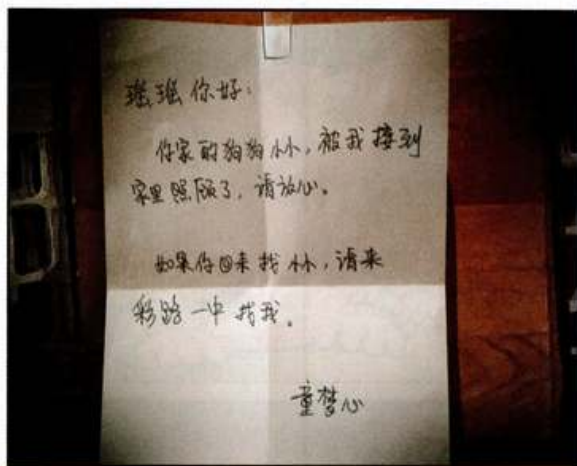 瑶瑶你好:
你家的狗狗小小,被我接到
家里照顾了,请放心。
如果你回来找小小,请来
彩路一中找我。
童梦心